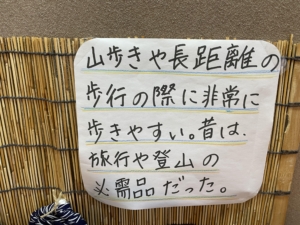 山歩きや長距離の
歩行の際に非常に
歩きやすい。昔は、
旅行や登山の
必需品だった。